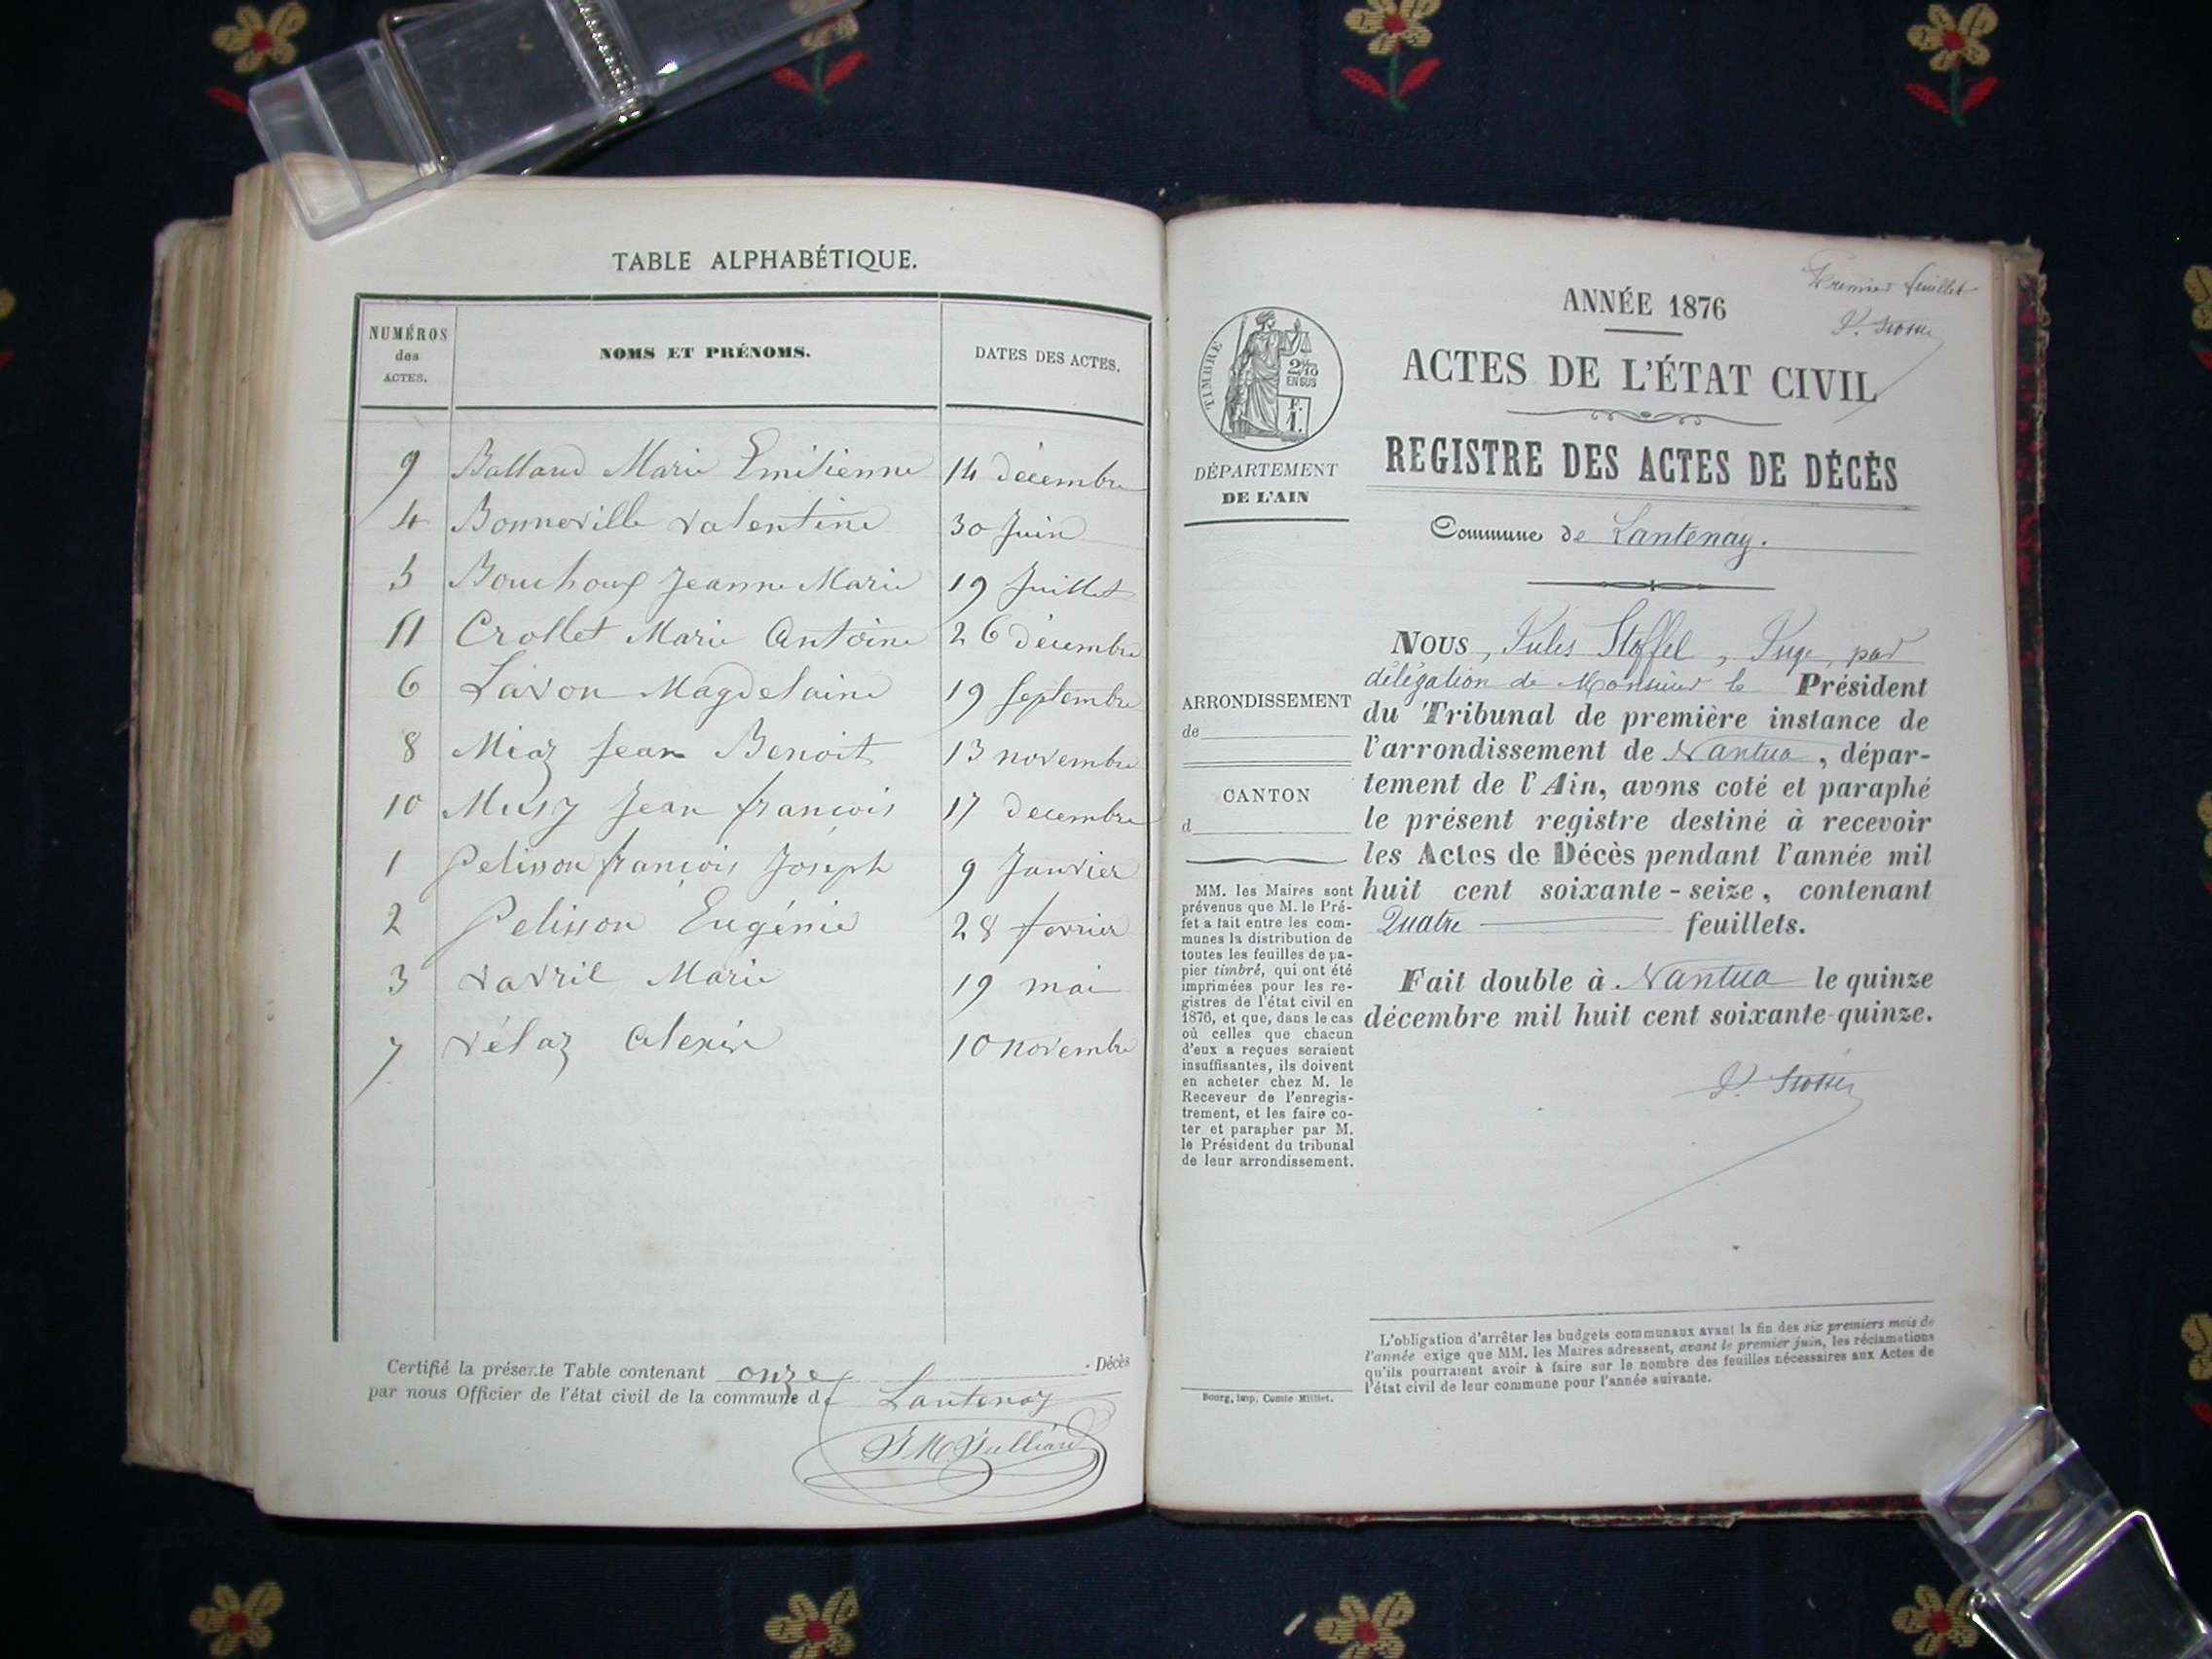 TABLE ALPHABÉTIQUE.
NUMÉROS
des
ACTES.
NOMS ET PRÉNOMS.
DATES DES ACTES.
9 Balland Marie Emilienne 14 décembre
4 Bonneville Valentine 30 Juin
5 Bouchoux Jeanne Marie 19 Juillet
11 Crollet Marie Antoine 26 décembre
6 Lavon Magdelaine 19 Septembre
8 Miaz Jean Benoit 13 novembre
10 Musy Jean françois 17 decembre
1 Pelisson françois Joseph 9 Janvier
2 Pelisson Eugénie 28 fevrier
3 Vavril Marie 19 mai
7 Vélaz Alexis 10 novembre
Certifié la présente Table contenant onze Décès
par nous Officier de l'état civil de la commune de Lantenay
J M Julliard
Premier feuillet
ANNÉE 1876
ACTES DE L'ÉTAT CIVIL
REGISTRE DES ACTES DE DÉCÈS
Commune de Lantenay.
TIMBRE
2/10
EN SUS
F.
1.
DÉPARTEMENT
DE L'AIN
ARRONDISSEMENT
de
CANTON
d
MM. les Maires sont
prévenus que M. le Pré-
fet a fait entre les com-
munes la distribution de
toutes les feuilles de pa-
pier timbré, qui ont été
imprimées pour les re-
gistres de l'état civil en
1876, et que, dans le cas
où celles que chacun
d'eux a reçues seraient
insuffisantes, ils doivent
en acheter chez M. le
Receveur de l'enregis-
trement, et les faire co-
ter et parapher par M.
le Président du tribunal
de leur arrondissement.
Bourg, imp. Comte-Milliet.
NOUS, Jules Stoffel, Juge, par
délégation de Monsieur le Président
du Tribunal de première instance de
l'arrondissement de Nantua, dépar-
tement de l'Ain, avons coté et paraphé
le présent registre destiné à recevoir
les Actes de Décès pendant l'année mil
huit cent soixante-seize, contenant
Quatre feuillets.
Fait double à Nantua le quinze
décembre mil huit cent soixante-quinze.
L'obligation d'arrêter les budgets communaux avant la fin des six premiers mois de
l'année exige que MM. les Maires adressent, avant le premier juin, les réclamations
qu'ils pourraient avoir à faire sur le nombre des feuilles nécessaires aux Actes de
l'état civil de leur commune pour l'année suivante.